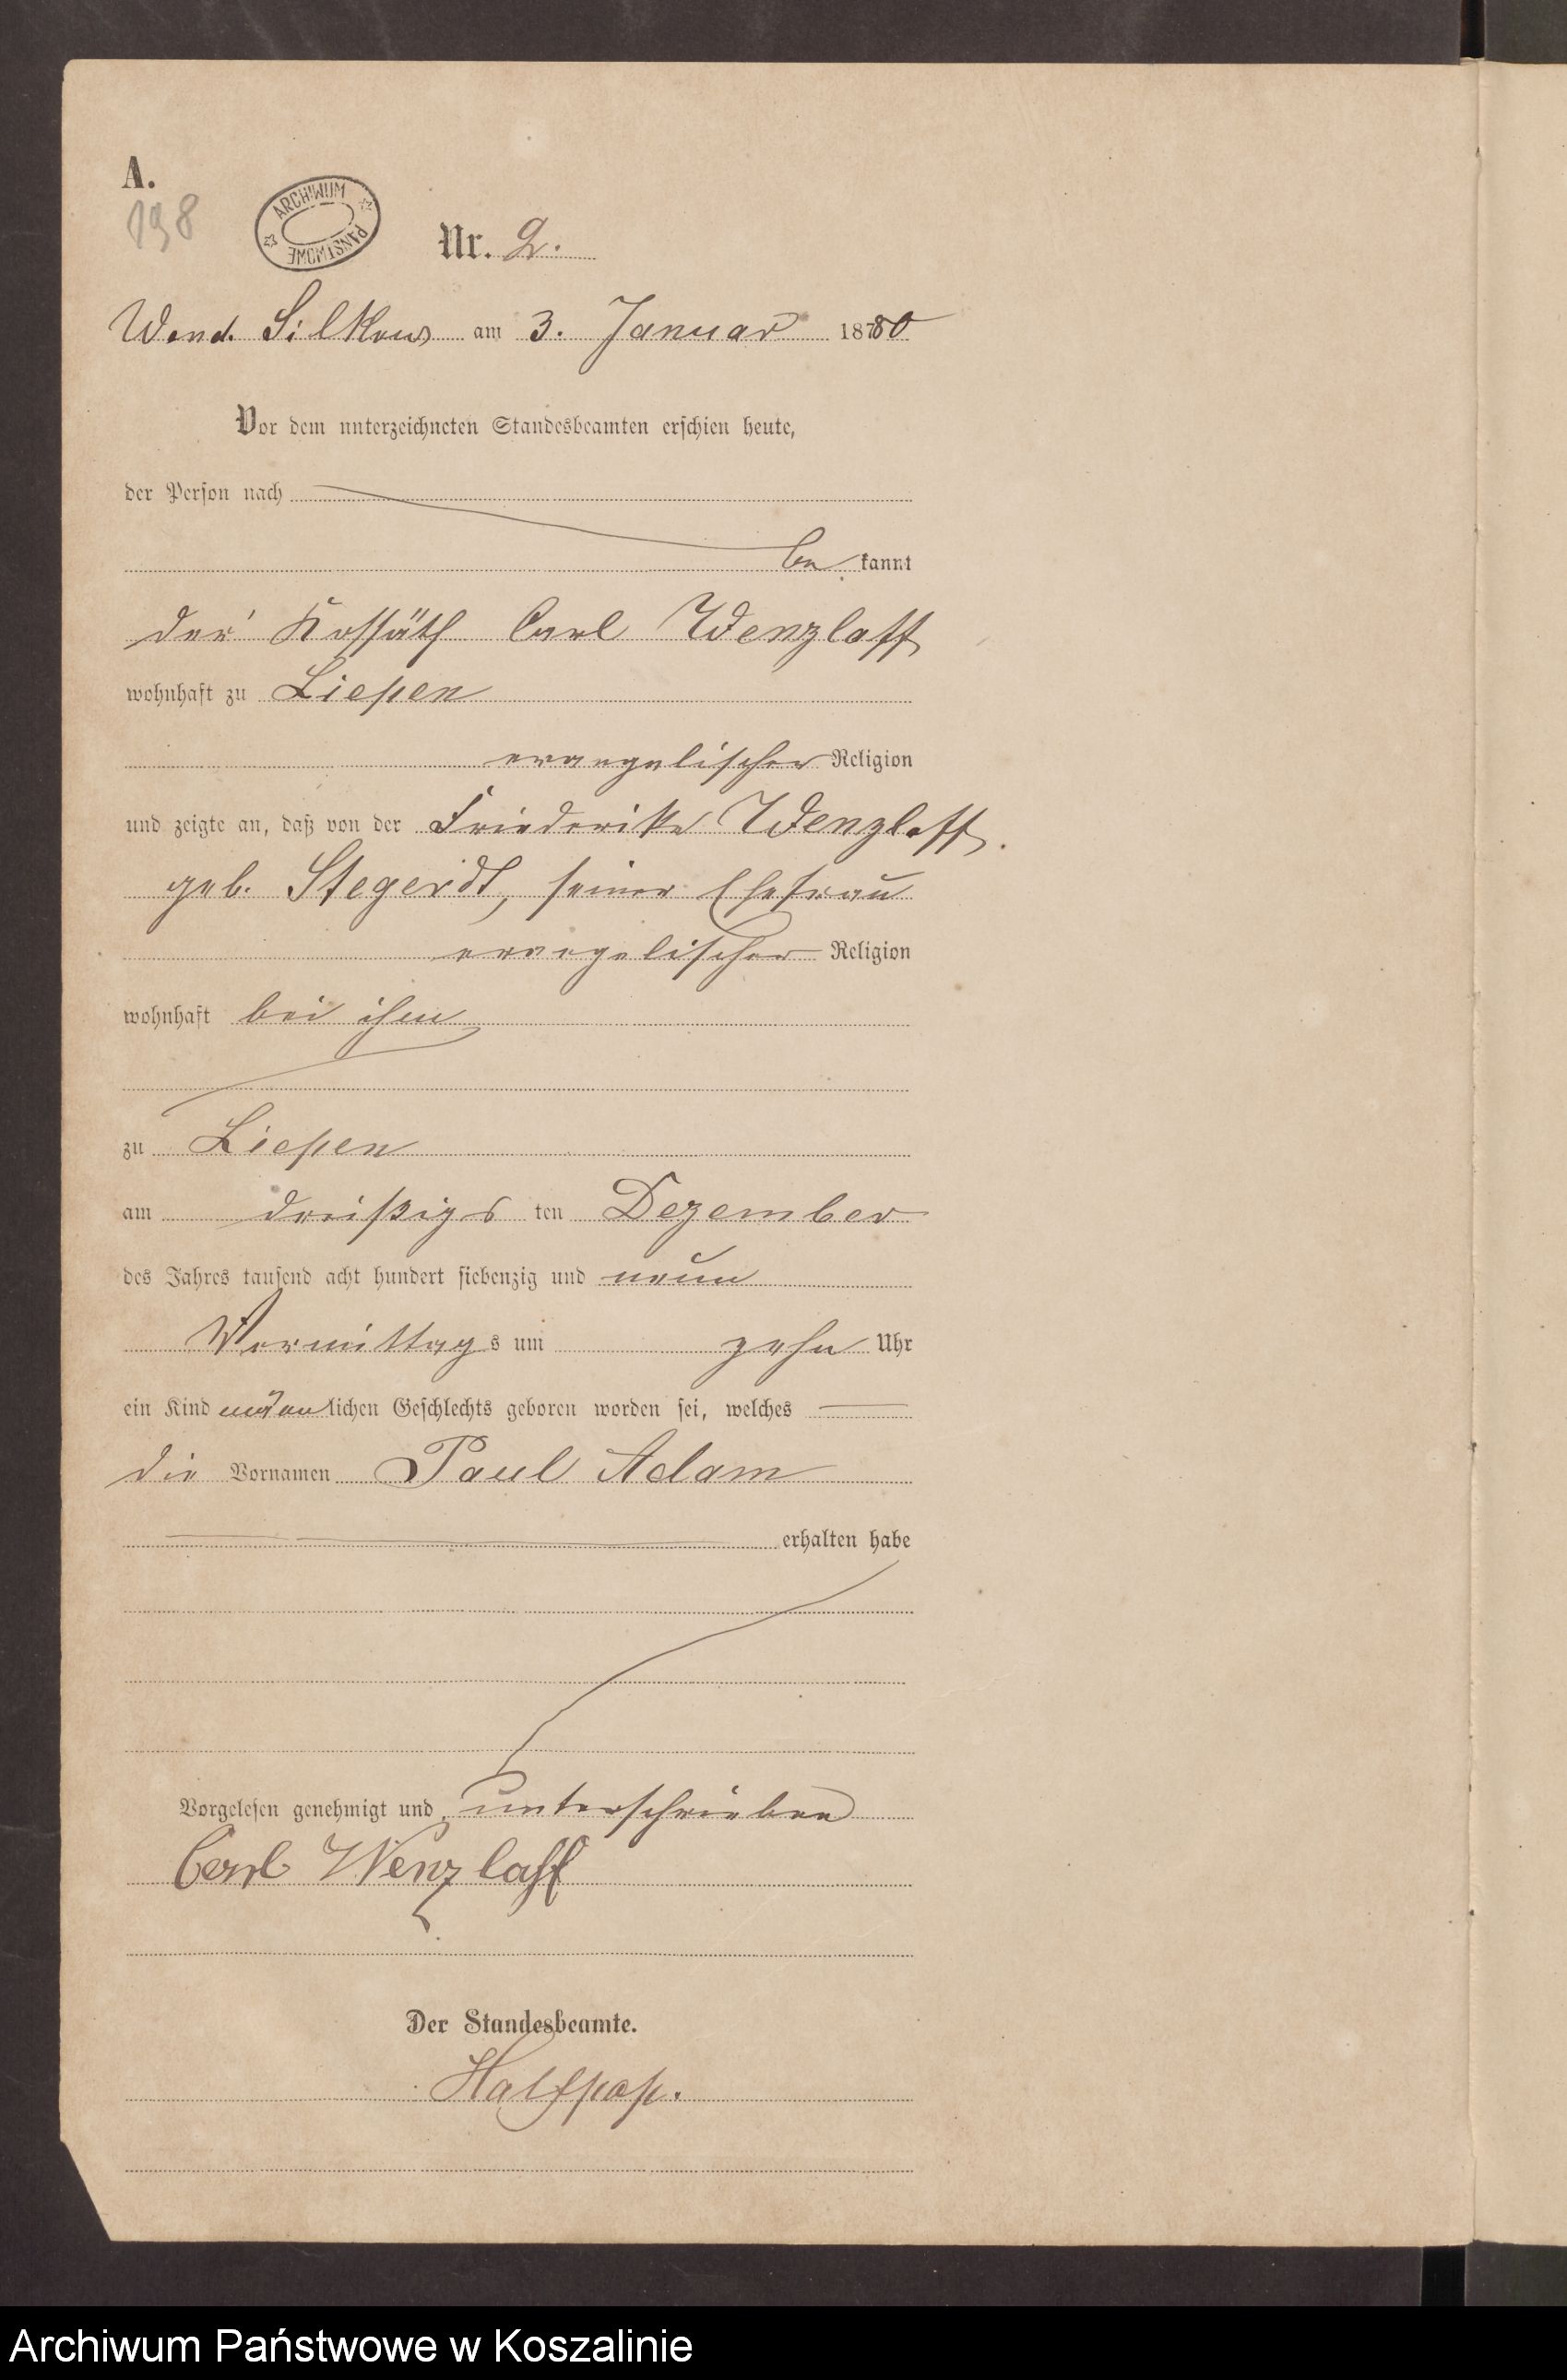 A.
198
ARCHIWUM PAŃSTWOWE
Nr. 2.
Wend. Silkow am 3. Januar 1880
Vor dem unterzeichneten Standesbeamten erschien heute,
der Person nach
be kannt
der Kossäth Carl Wenzlaff
wohnhaft zu Liepen
evangelischer Religion
und zeigte an, daß von der Friederike Wenzlaff.
geb. Stegerdt, seiner Ehefrau
evangelischer Religion
wohnhaft bei ihm
zu Liepen
am dreißigs ten Dezember
des Jahres tausend acht hundert siebenzig und neun
Vormittags um zehn Uhr
ein Kind männlichen Geschlechts geboren worden sei, welches
die Vornamen Paul Adam
erhalten habe
Vorgelesen genehmigt und unterschrieben
Carl Wenzlaff
Der Standesbeamte.
Halfpap.
Archiwum Państwowe w Koszalinie